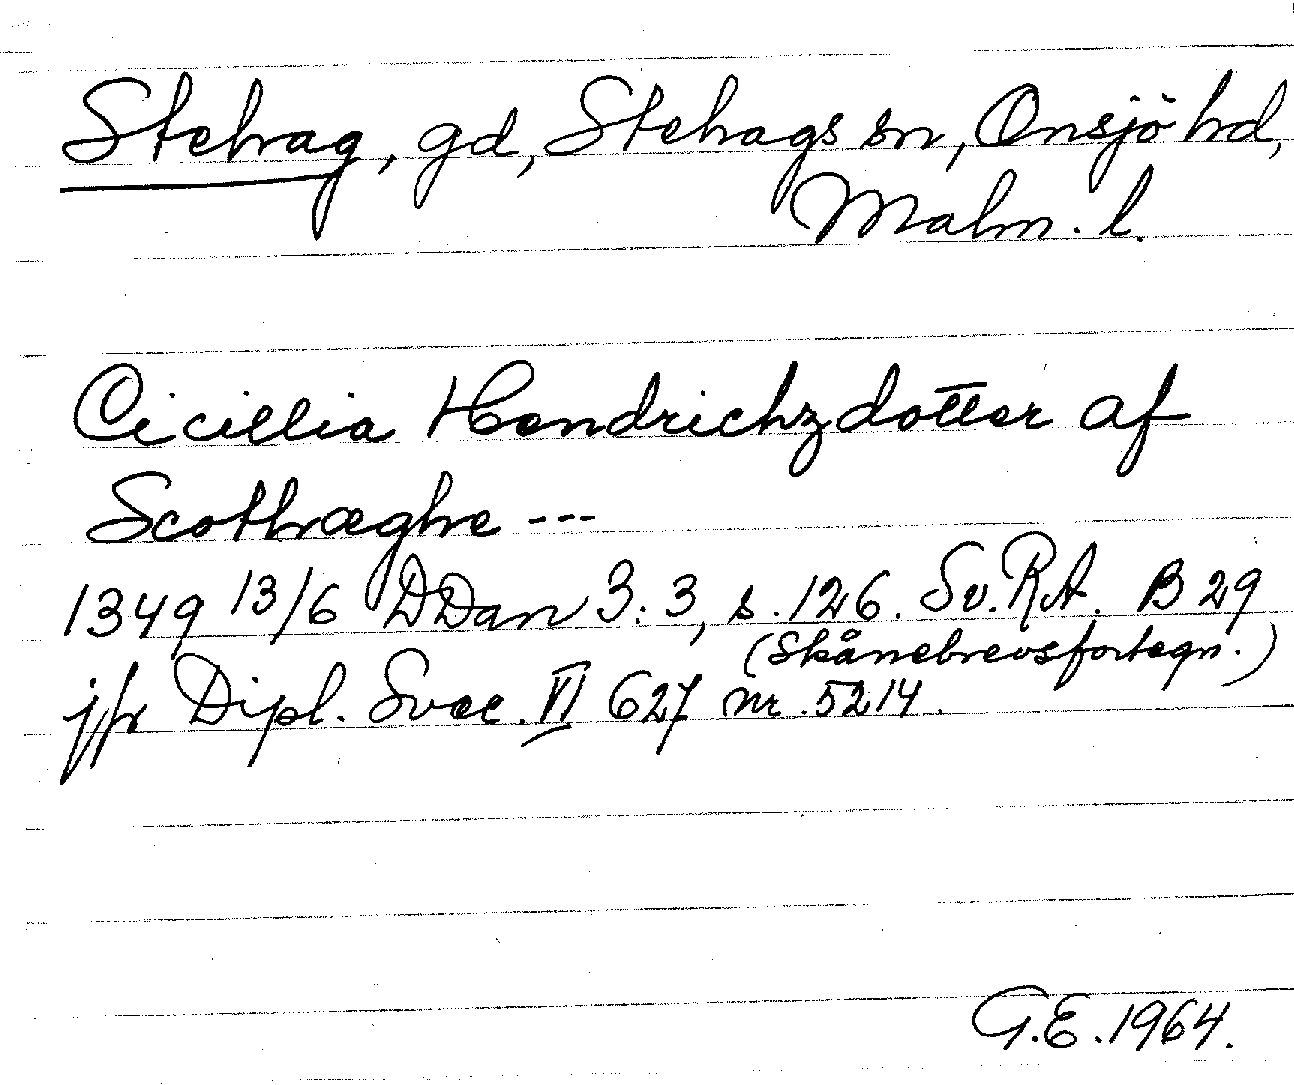 Stehag, gd, Stehags sn, Onsjö hd,
Malm. l.
Cicillia Hendrichzdotter af
Scothræghe ---
1349 13/6 DDan 3:3, s. 126. Sv. RA. B 29
(Skånebrevsfortegn.)
jfr Dipl. Svec. VI 627 nr. 5214.
G.E. 1964.